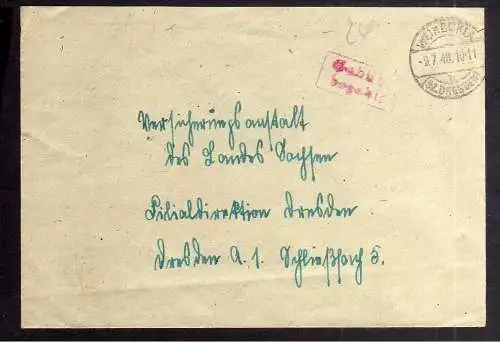 24
-9.7.48.10-11
(BZ.DRESDEN)
Gebühr
bezahlt
Versicherungsanstalt
des Landes Sachsen
Filialdirektion Dresden
Dresden A. 1. Schließfach 5.